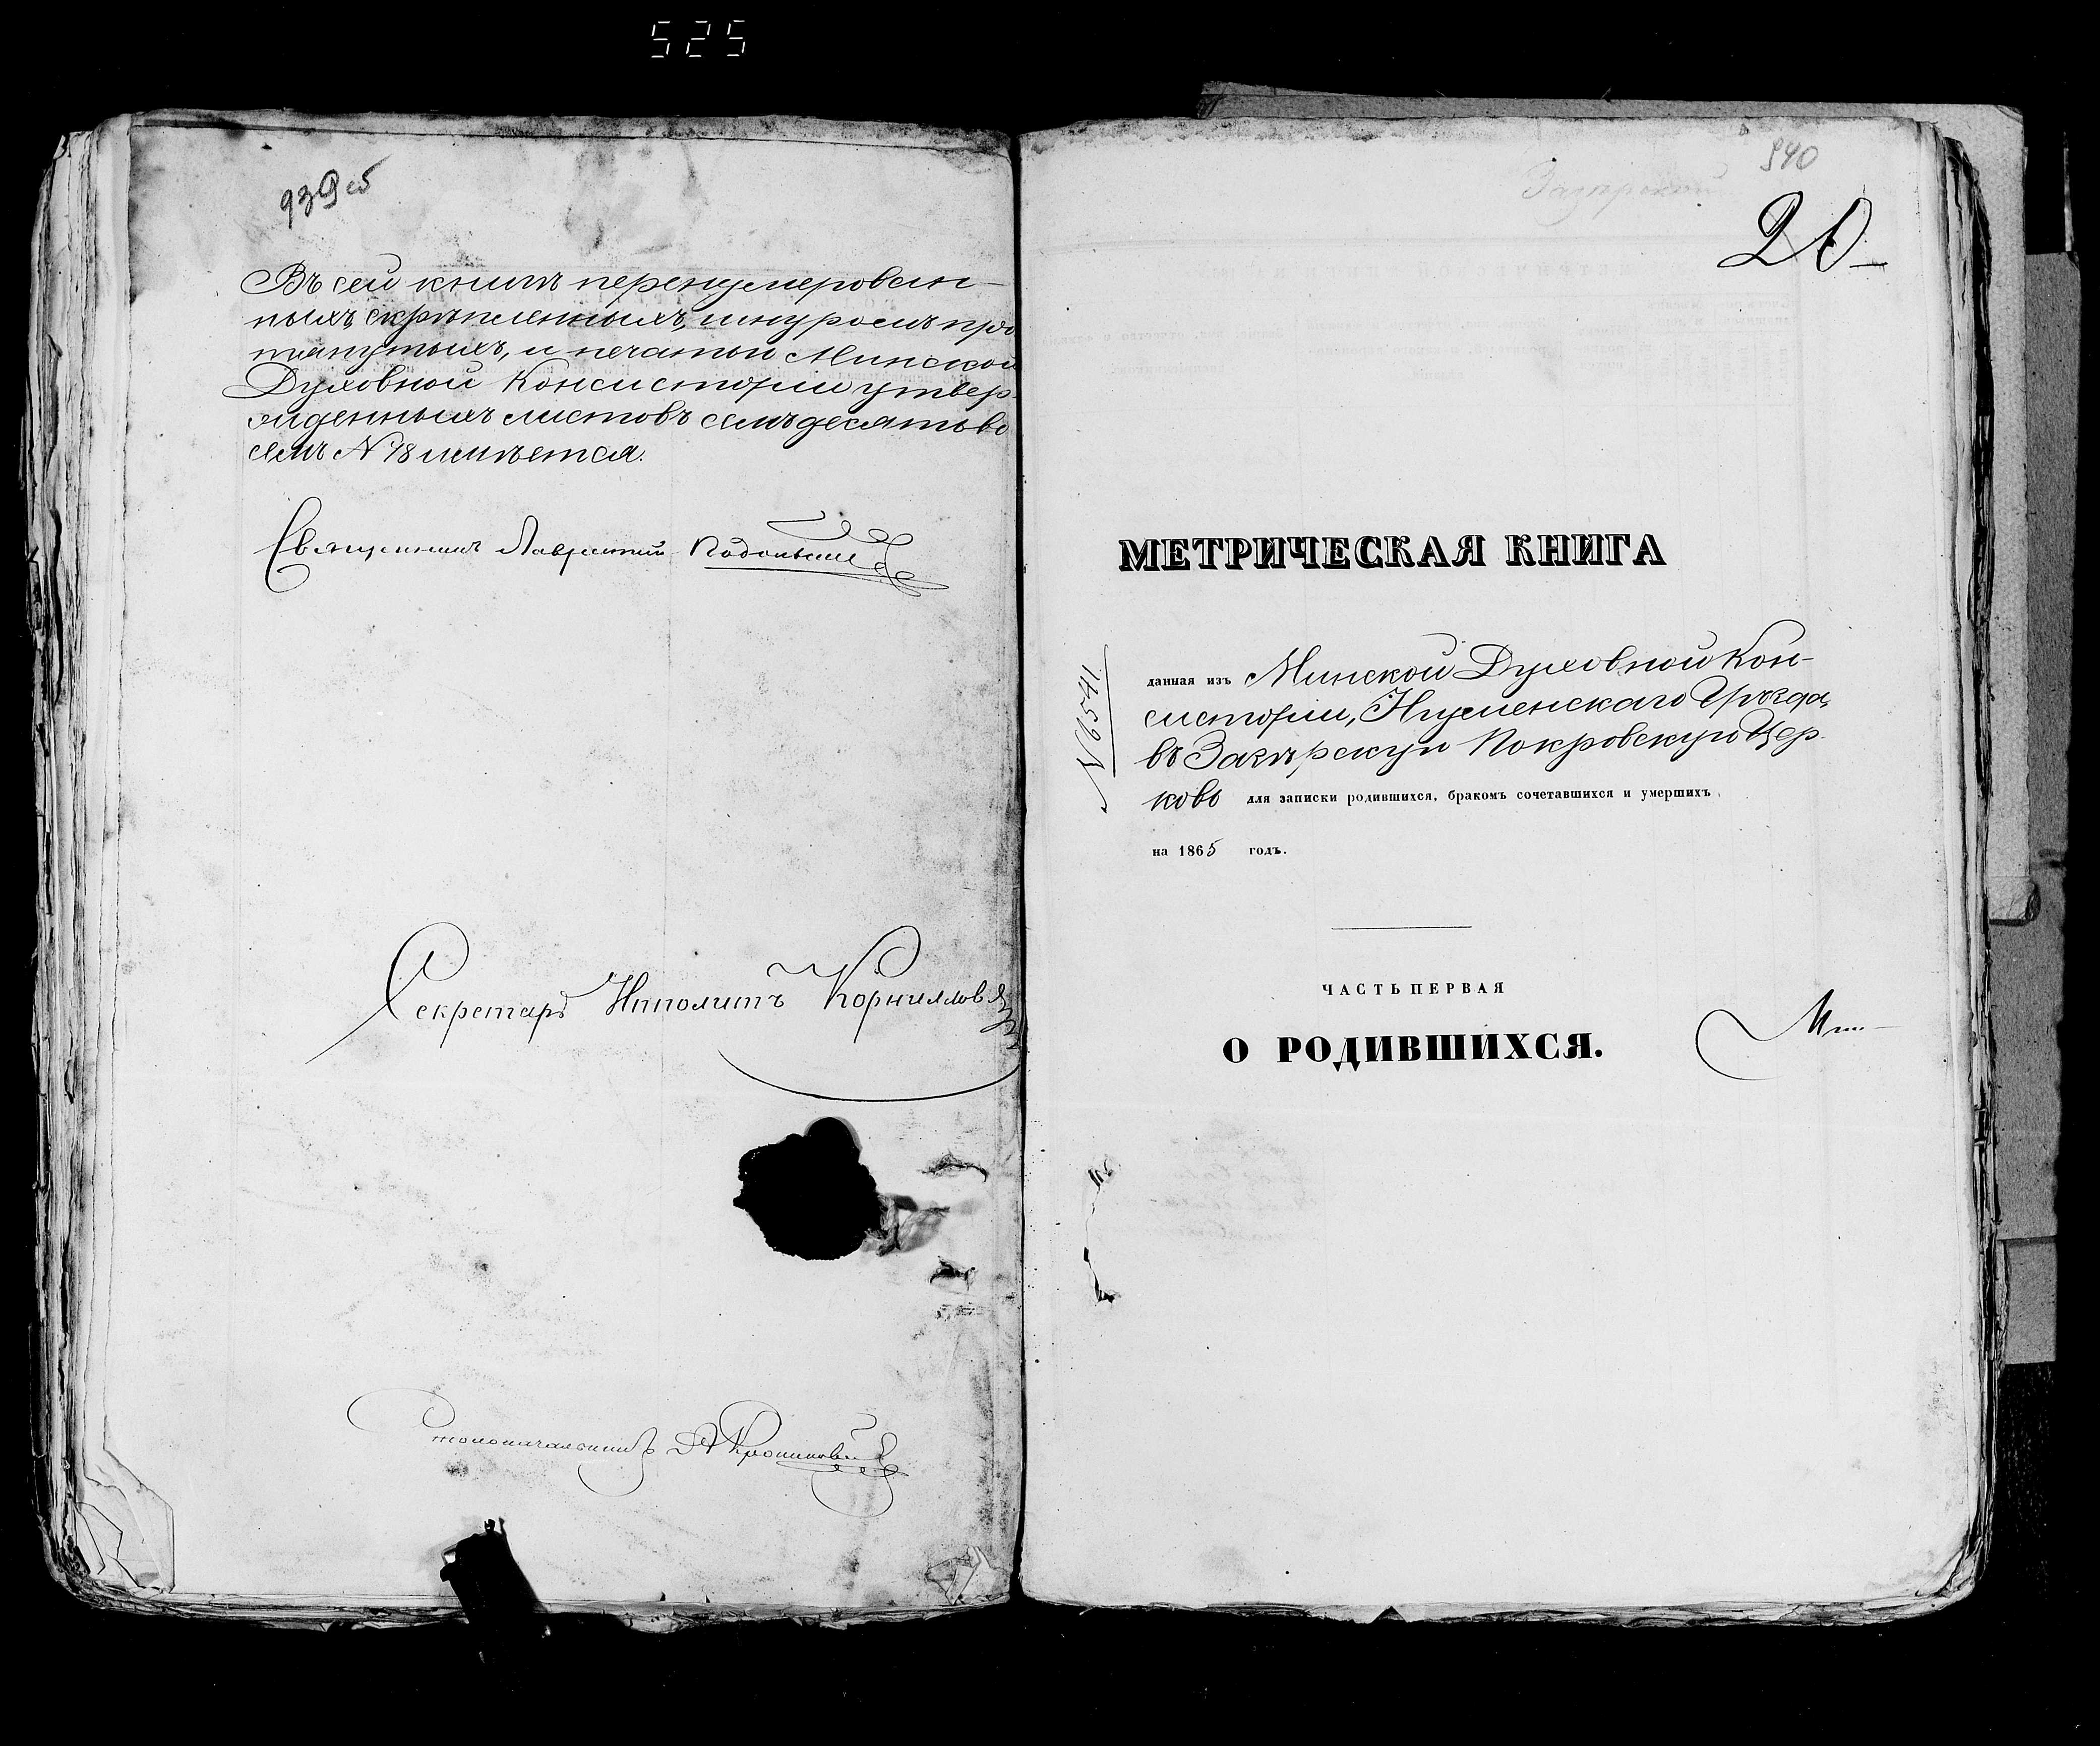 525
939 об
Въ сей книгѣ перенумерован-
ныхъ, скрѣпленныхъ, шнуромъ про
тянутыхъ, и печатью Минской
Духовной Консисторіи утвер-
жденныхъ листовъ семьдесятьво
семь N 78 имѣется.
Священникъ Лаврентій
Секретарь Ипполитъ
Столоначальникъ
940
20
МЕТРИЧЕСКАЯ КНИГА
данная изъ Минской Духовной Кон-
систоріи, Игуменскаго Уѣзда,
въ Покровскую Цер-
ковь для записки родившихся, бракомъ сочетавшихся и умершихъ
на 1865 годъ.
ЧАСТЬ ПЕРВАЯ
О РОДИВШИХСЯ.